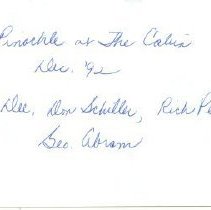 Pinochle at The Cabin
Dec. '92
Dee, Don Schiller, Rich Pe
Geo. Abram